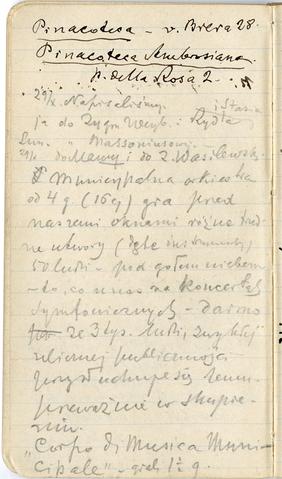 Pinacoteca – v. Brera 28.
Pinacoteca Ambrosiana
p. della Rosa 2.
29/X. Napisaliśmy
i Stasia
ja do Zygm. i Rydla
" Massoniusowi
do Mamy i do Z. Wasilewsk.
Municypalna orkiestra
od 4 g. (16 g) gra przed
naszemi oknami różne trud-
ne utwory (dęte instrumenty)
50 ludzi – pod gołem niebem
– to, co u nas na koncertach
symfonicznych – darmo
ze 3 tys. ludzi, zwykłej
ulicznej publiczności
przysłuchuje się temu
przeważnie w skupie-
niu.
„Corpo di Musica Muni-
cipale" – grali 1½ g.